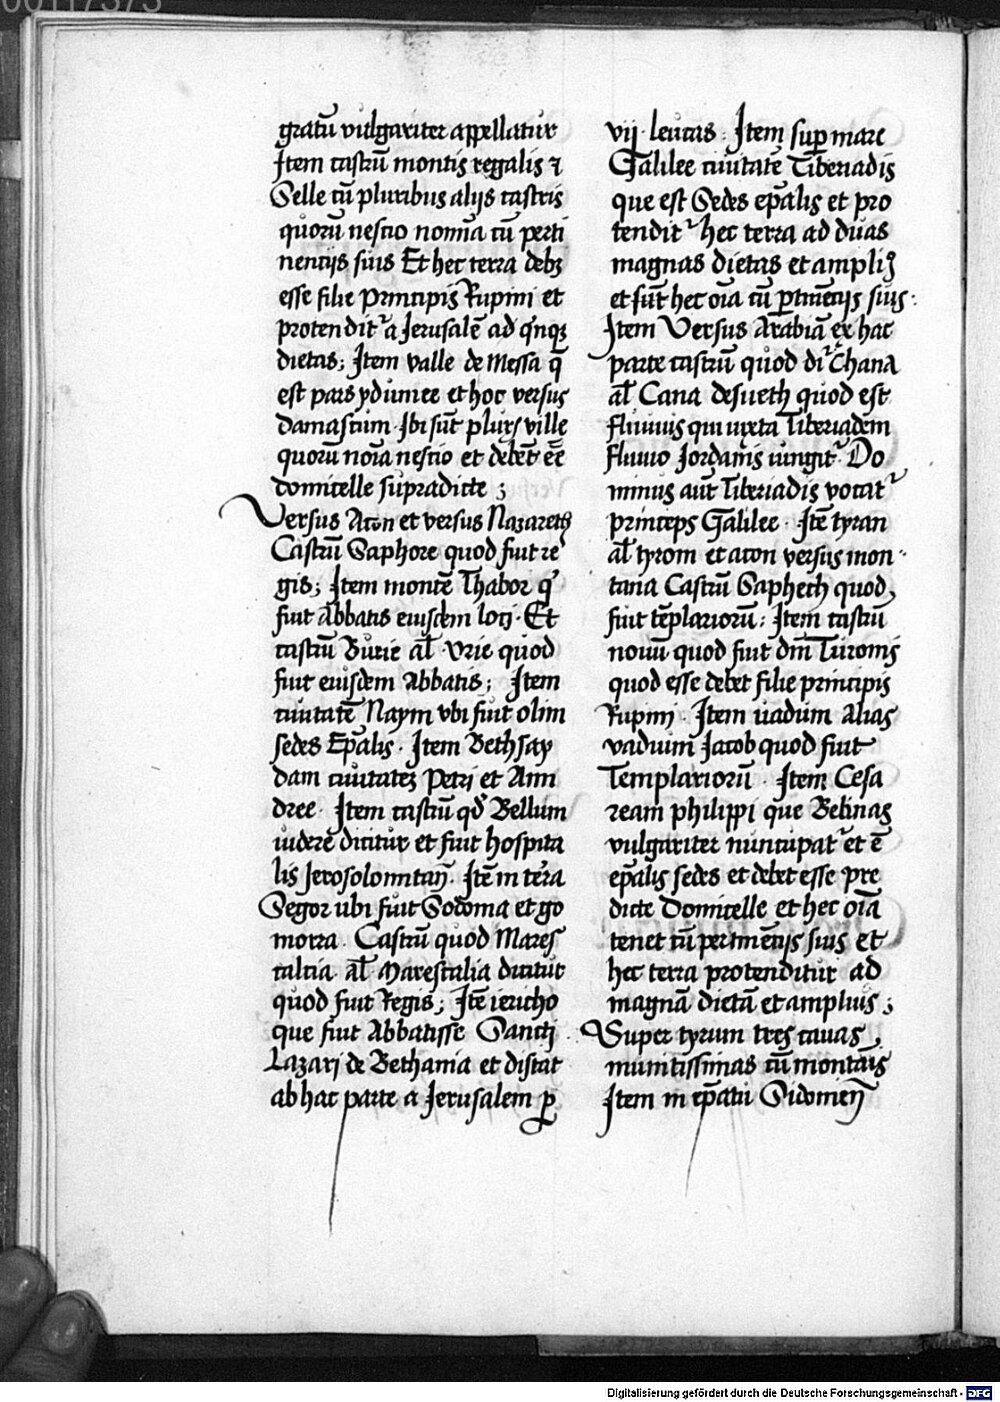 gratū vulgariter appellatur
Item castrū montis regalis ⁊
Selle cū pluribus alijs castris
quorū nescio nomīa cū perti
nentijs suis Et hec terra debꝫ
esse filie principis Rupini et
protendit᷑ a Jerusalē ad q̍nqꝫ
dietas; Item valle de Messa q̄
est pars ydumee et hoc versus
damascum. Ibi sūt plures ville
quorū noīa nescio et debēt eē
domicelle supradicte ;
Versus Acon et versus Nazareth
Castrū Saphore quod fuit re
gis; Item montē Thabor q̍
fuit Abbatis eiusdem loci. Et
castrū Burie al̄. Vrie quod
fuit eiusdem Abbatis; Item
ciuitatē Naym vbi fuit olim
sedes Ep̄alis. Item Bethsay
dam ciuitateꝫ Petri et Ann
dree. Item castrū qd̍ Bellum
uidere dicitur et fuit hospita
lis Jerosolomitan̄. Itē in terra
Segor ubi fuit Sodoma et go
morra. Castrū quod Mares
calcia al̄ Marescalia dicitur
quod fuit Regis; Itē iericho
que fuit Abbatisse Sancti
Lazari de Bethania et distat
ab hac parte a Jerusalem ꝑ
vij. leucas. Item sup̄ mare
Galilee ciuitatē Tiberiadis
que est Sedes ep̄alis et pro
tendit᷑ hec terra ad duas
magnas dietas et ampliꝰ
et sūt hec oīa cū ꝑtinētijs suis.
Item Versus Arabiā ex hac
parte castrū quod dr̄ Chana
al̄ Cana desueth quod est
fluuius qui iuxta Tiberiadem
fluuio Jordanis iungit᷑. Do
minus aut̄ Tiberiadis vocat᷑
princeps Galilee. Itē tyran
al̄ tyrom et acon versus mon
tana Castrū Saphech quod
fuit tēplariorū: Item castrū
nouū quod fuit dn̄i Turonis
quod esse debet filie principis
Rupini. Item uadum alias
vaduim Jacob quod fuit
Templariorū. Item Cesa
ream philippi que Belinas
vulgariter nuncupat᷑ et ē
ep̄alis sedes et debet esse pre
dicte Domicelle et hec oīa
tenet cū pertinētijs suis et
hec terra protenditur ad
magnā dietā et amplius;
Super tyrum tres cauas
munitissimas cū montais
Item in ep̄atu Sidonien̄
Digitalisierung gefördert durch die Deutsche Forschungsgemeinschaft - DFG